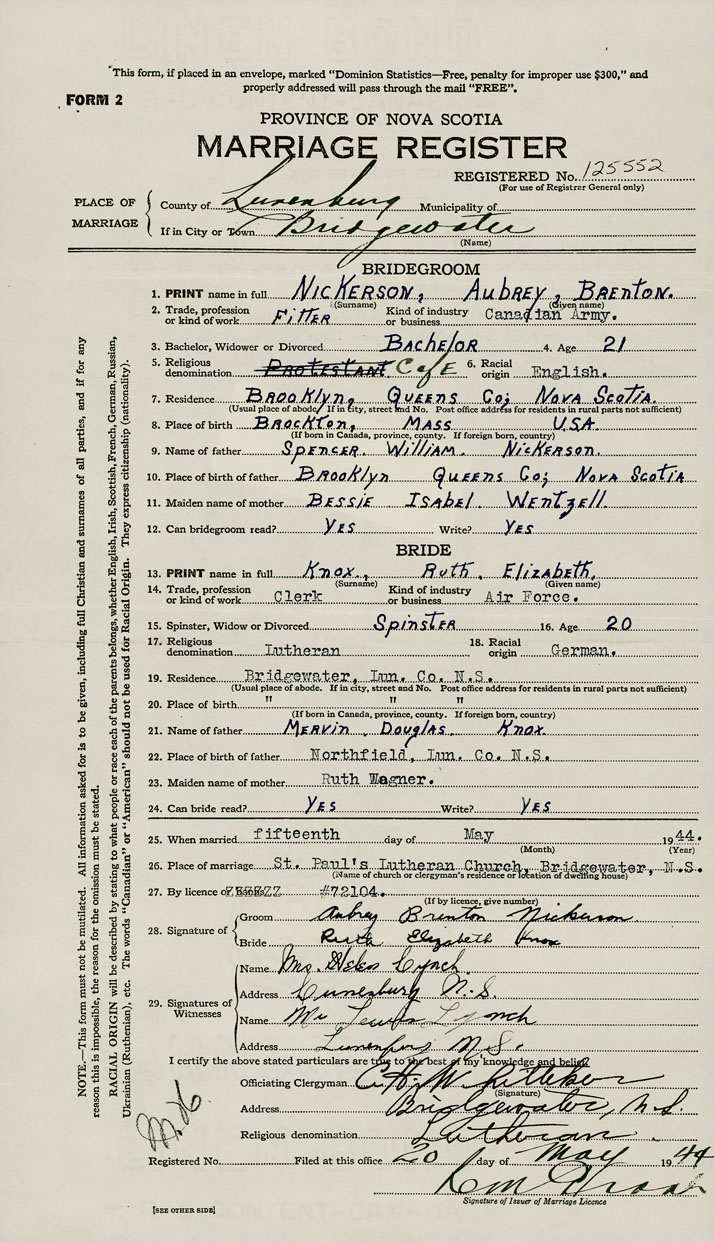 "This form, if placed in an envelope, marked "Dominion Statistics—Free, penalty for improper use $300," and
properly addressed will pass through the mail "FREE".
FORM 2
PROVINCE OF NOVA SCOTIA
MARRIAGE REGISTER
REGISTERED No. 125552
(For use of Registrar General only)
PLACE OF MARRIAGE
County of Lunenburg Municipality of
If in City or Town Bridgewater
(Name)
BRIDEGROOM
1. PRINT name in full NICKERSON, AUBREY, BRENTON.
(Surname) (Given name)
2. Trade, profession or kind of work FITTER Kind of industry or business Canadian Army.
3. Bachelor, Widower or Divorced BACHELOR 4. Age 21
5. Religious denomination PROTESTANT C of E 6. Racial origin English.
7. Residence BROOKLYN, QUEENS CO; NOVA SCOTIA.
(Usual place of abode. If in city, street and No. Post office address for residents in rural parts not sufficient)
8. Place of birth BROCKTON, MASS U.S.A.
(If born in Canada, province, county. If foreign born, country)
9. Name of father SPENCER WILLIAM NICKERSON.
10. Place of birth of father BROOKLYN QUEENS CO; NOVA SCOTIA
11. Maiden name of mother BESSIE ISABEL WENTZELL.
12. Can bridegroom read? YES Write? YES
BRIDE
13. PRINT name in full KNOX, RUTH, ELIZABETH,
(Surname) (Given name)
14. Trade, profession or kind of work Clerk Kind of industry or business Air Force.
15. Spinster, Widow or Divorced SPINSTER 16. Age 20
17. Religious denomination Lutheran 18. Racial origin German.
19. Residence Bridgewater, Lun. Co. N.S.
(Usual place of abode. If in city, street and No. Post office address for residents in rural parts not sufficient)
20. Place of birth " " "
(If born in Canada, province, county. If foreign born, country)
21. Name of father MERVIN DOUGLAS KNOX
22. Place of birth of father Northfield, Lun. Co. N.S.
23. Maiden name of mother Ruth Wagner.
24. Can bride read? YES Write? YES
25. When married fifteenth day of May 1944.
(Month) (Year)
26. Place of marriage St. Paul's Lutheran Church, Bridgewater, N.S.
(Name of church or clergyman's residence or location of dwelling house)
27. By licence #72104.
(If by licence, give number)
28. Signature of
Groom Aubrey Brenton Nickerson
Bride Ruth Elizabeth Knox
29. Signatures of Witnesses
Name Mrs. Lynch
Address Lunenburg N.S.
Name Mr Lewis Lynch
Address Lunenburg N.S.
I certify the above stated particulars are true to the best of my knowledge and belief.
Officiating Clergyman
(Signature)
Address Bridgewater, N.S.
Religious denomination Lutheran
Registered No. Filed at this office 20 day of May 1944
Signature of Issuer of Marriage Licence
[SEE OTHER SIDE]
NOTE.—This form must not be mutilated. All information asked for is to be given, including full Christian and surnames of all parties, and if for any
reason this is impossible, the reason for the omission must be stated.
RACIAL ORIGIN will be described by stating to what people or race each of the parents belongs, whether English, Irish, Scottish, French, German, Russian,
Ukrainian (Ruthenian), etc. The words "Canadian" or "American" should not be used for Racial Origin. They express citizenship (nationality).